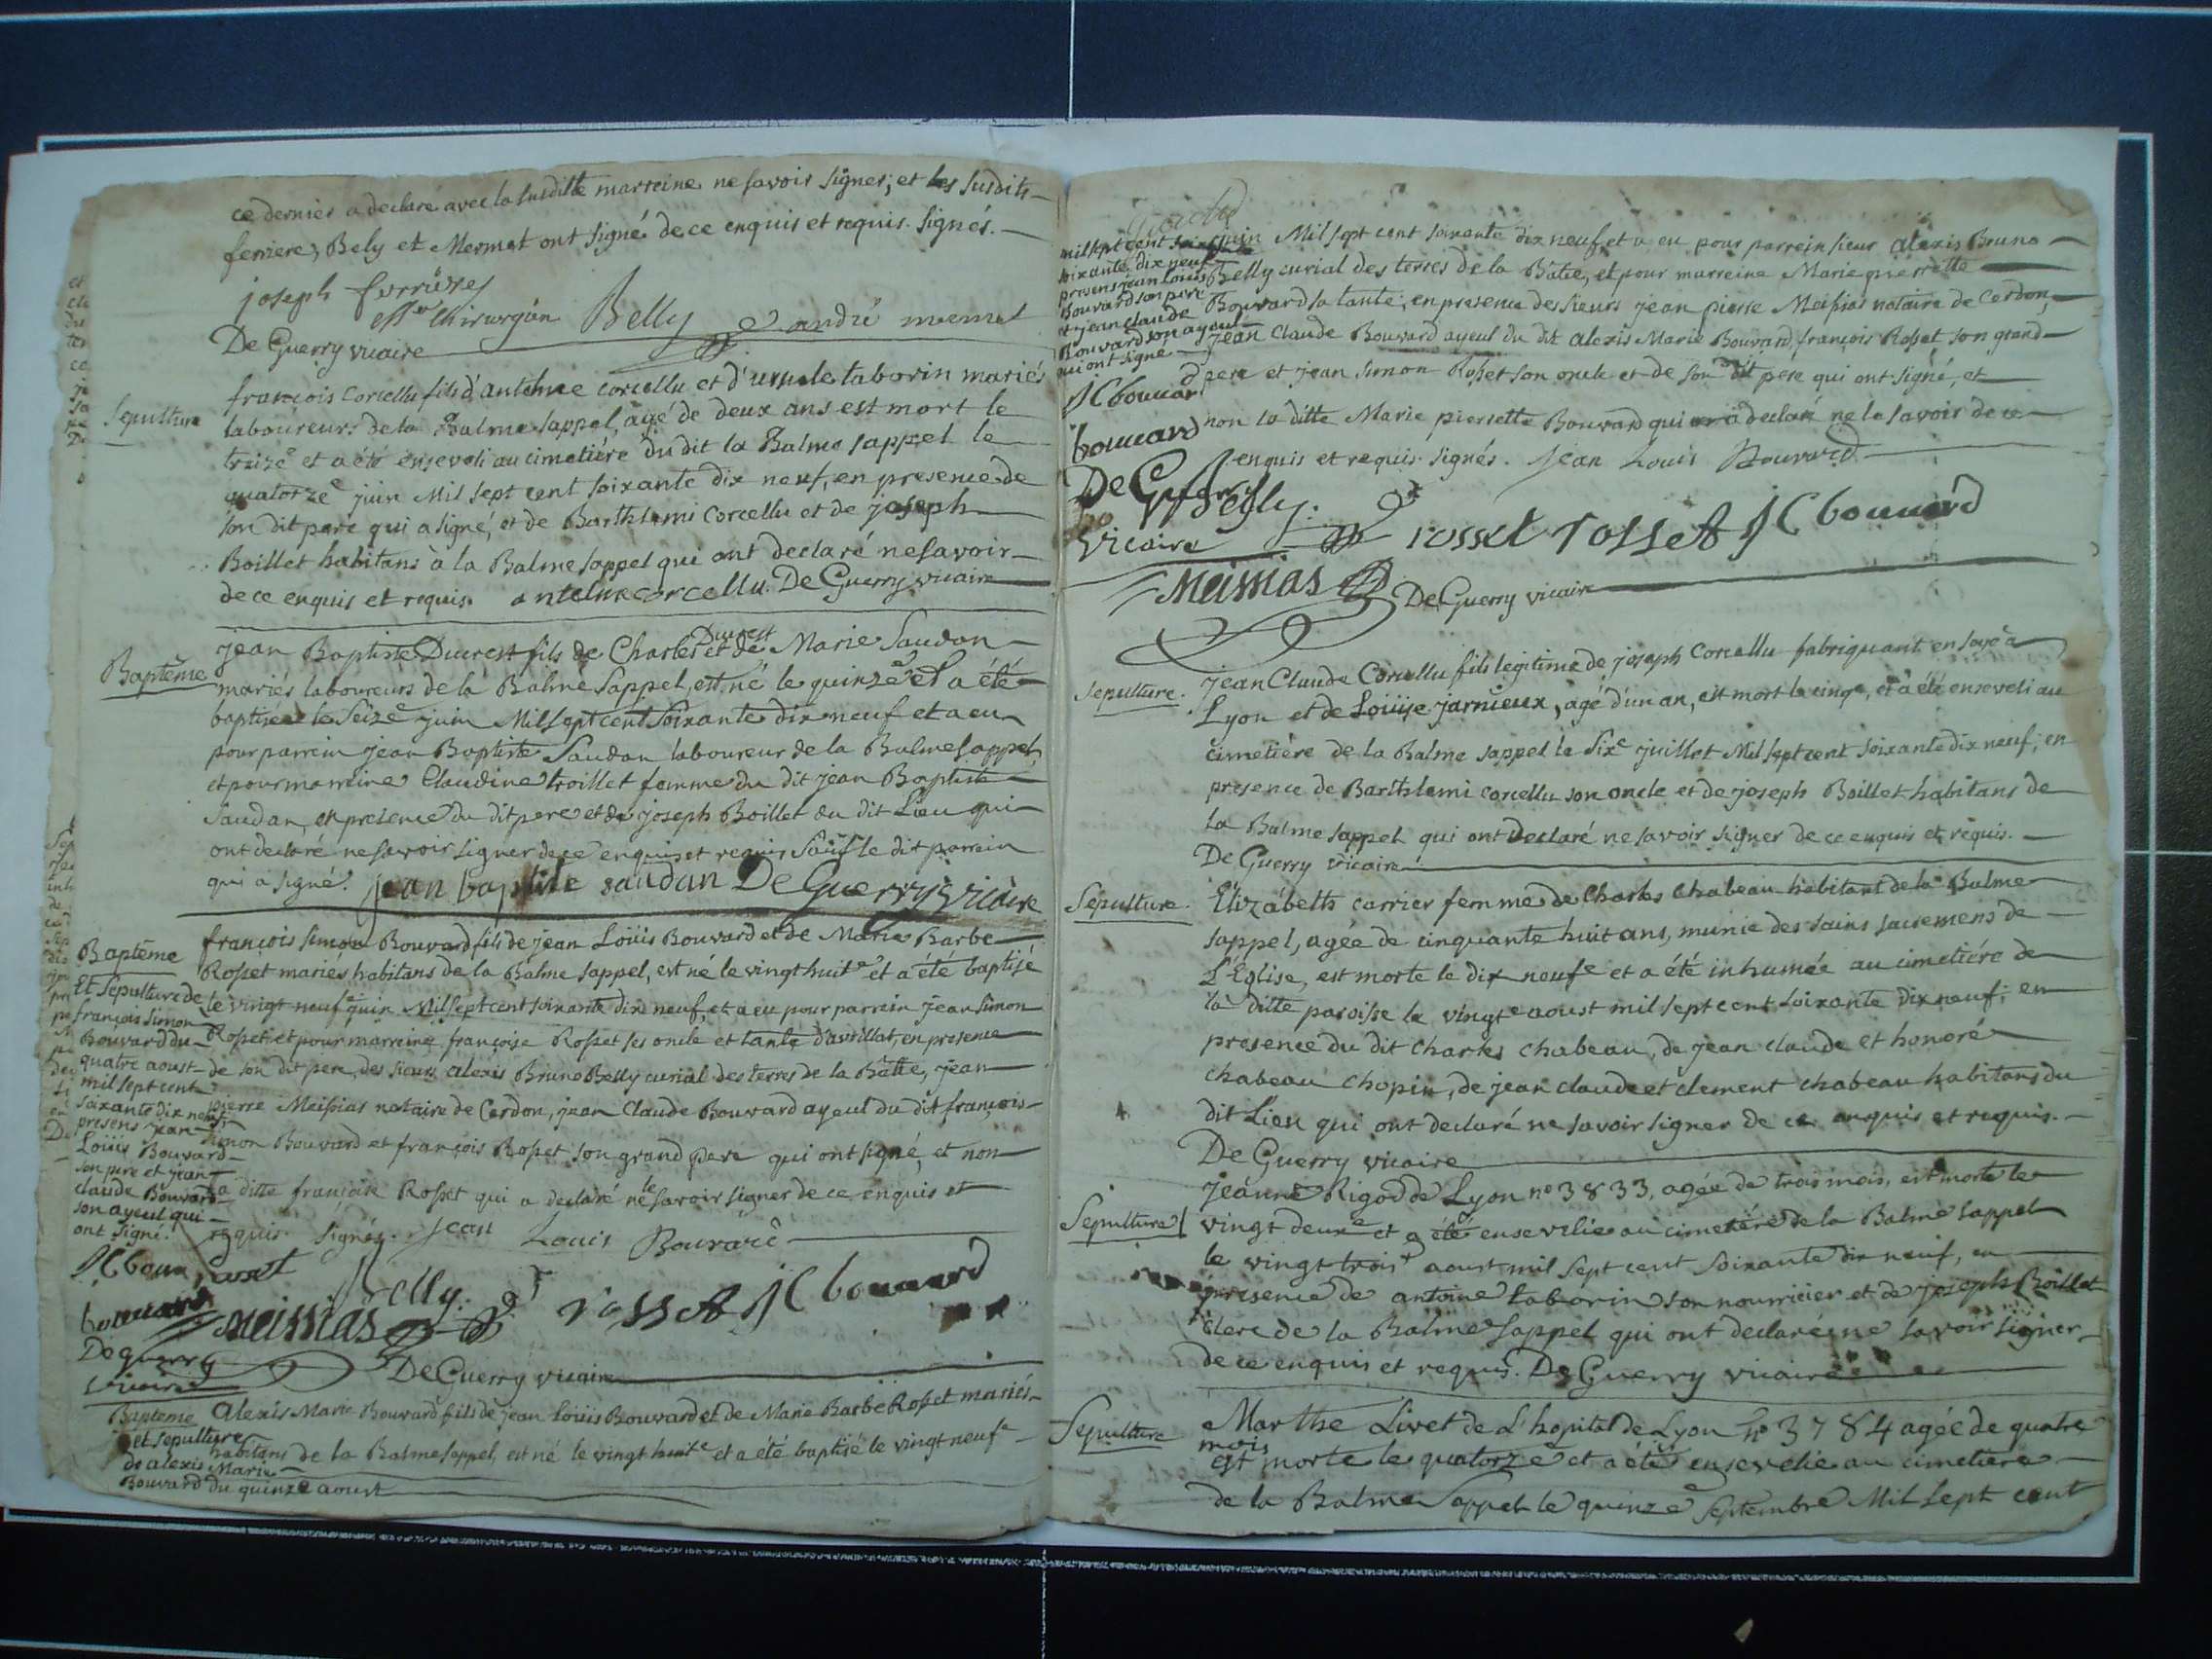 ce dernier a declare avec la susditte marreine ne savoir signer, et les susdits
ferriere, Bely et Mermet ont signé de ce enquis et requis. signés.
joseph ferrières
Mtre chirurgien Belly andré mermet
De Guerry vicaire
Sepulture
françois Corcellu fils d'antelme corcellu et d'ursule taborin mariés
laboureurs de la Balme sappel, agé de deux ans est mort le
treize et a été enseveli au cimetiére du dit la Balme sappel le
quatorze juin Mil sept cent soixante dix neuf, en presence de
son dit pere qui a signé, et de Barthlemi Corcellu et de joseph
Boillet habitans à la Balme sappel qui ont declaré ne savoir
de ce enquis et requis. antelme corcellu De Guerry vicaire
Baptême
jean Baptiste Ducrest fils de Charles Ducrest et de Marie Saudan
mariés laboureurs de la Balme Sappel, est né le quinze et a été
baptisé le seize juin Mil sept cent soixante dix neuf et a eu
pour parrein jean Baptiste Saudan laboureur de la Balme sappel,
et pour marreine Claudine troillet femme du dit jean Baptiste
Saudan, en presence du dit pere et de joseph Boillet du dit Lieu qui
ont declare ne savoir signer de ce enquis et requis sauf le dit parrein
qui a signé. jean baptiste saudan De Guerry Vicaire
Baptême
Et Sepulture de
françois Simon
Bouvard du
quatre aoust
mil sept cent
soixante dix neuf
presens jean
Loüis Bouvard
son pere et jean
claude Bouvard
son ayeul qui
ont signé.
JC bouvard
De guerry
vicaire
françois simon Bouvard fils de jean Loüis Bouvard et de Marie Barbe
Rosset mariés habitans de la Balme sappel, est né le vingt huite et a été baptisé
le vingt neufe juin Mil sept cent soixante dix neuf, et a eu pour parrein jean simon
Rosset et pour marreine françoise Rosset ses oncle et tante d'avrillat, en presence
de son dit pere, des sieurs alexis Bruno Belly curial des terres de la Bâtie, jean
pierre Meissias notaire de Cerdon, jean Claude Bouvard ayeul du dit françois
simon Bouvard et françois Rosset son grand pere qui ont signé, et non
la ditte françoise Rosset qui a declaré ne le savoir signer de ce enquis et
requis. signés. jean Louis Bouvard
rosset Belly rosset JC bouvard
Meissias
De Guerry vicaire
Bapteme
et sepulture
de alexis Marie
Bouvard du quinze aoust
alexis Marie Bouvard fils de jean Loüis Bouvard et de Marie Barbe Rosset mariés
habitans de la Balme sappel, est né le vingt huite et a été baptisé le vingt neufe
mil sept cent
soixante dix neuf
presens jean Loüis
Bouvard son pere
et jean claude
Bouvard son ayeul
qui ont signe
JC bouvard
De Guerry
Vicaire
juin Mil sept cent soixante dix neuf et a eu pour parrein sieur alexis Bruno
Belly curial des terres de la Bâtie, et pour marreine Marie pierrette
Bouvard sa tante, en presence des sieurs jean pierre Meissias notaire de Cerdon,
jean Claude Bouvard ayeul du dit alexis Marie Bouvard, françois Rosset son grand
pere et jean simon Rosset son oncle et de son dit pere qui ont signé, et
non la ditte Marie pierrette Bouvard qui a declaré ne le savoir de ce
enquis et requis. signés. jean Louis Bouvard
Belly. rosset rosset JC bouvard
Meissias De Guerry vicaire
Sepulture.
jean Claude Corcellu fils legitime de joseph Corcellu fabriquant en soye à
Lyon et de Loüise jarnieux, agé d'un an, est mort le cinqe, et a été enseveli au
cimetière de la Balme sappel le sixe juillet Mil sept cent soixante dix neuf, en
presence de Barthlemi corcellu son oncle et de joseph Boillet habitans de
la Balme sappel qui ont declaré ne savoir signer de ce enquis et requis.
De Guerry vicaire
Sepulture.
Elizabeth carrier femme de Charles Chabeau habitant de la Balme
sappel, agée de cinquante huit ans, munie des sains sacremens de
L'Eglise, est morte le dix neufe et a été inhumée au cimetiére de
la ditte paroisse le vingte aoust mil sept cent soixante dix neuf, en
presence du dit Charles chabeau, de jean claude et honoré
chabeau chopin, de jean claude et clement chabeau habitans du
dit Lieu qui ont declaré ne savoir signer de ce enquis et requis.
De Guerry vicaire
Sepulture
jeanne Rigod de Lyon no 3833, agée de trois mois, est morte le
vingt deuxe et a été ensevelie au cimetére de la Balme sappel
le vingt trois aoust mil sept cent soixante dix neuf, en
presence de antoine taborin son nourricier et de joseph Boillet
clerc de la Balme sappel qui ont declaré ne savoir signer
de ce enquis et requis. De Guerry vicaire
Sepulture
Marthe Livet de L'hopital de Lyon no 3784 agée de quatre
mois
est morte le quatorze et a été ensevelie au cimetiere
de la Balme Sappel le quinze septembre Mil sept cent